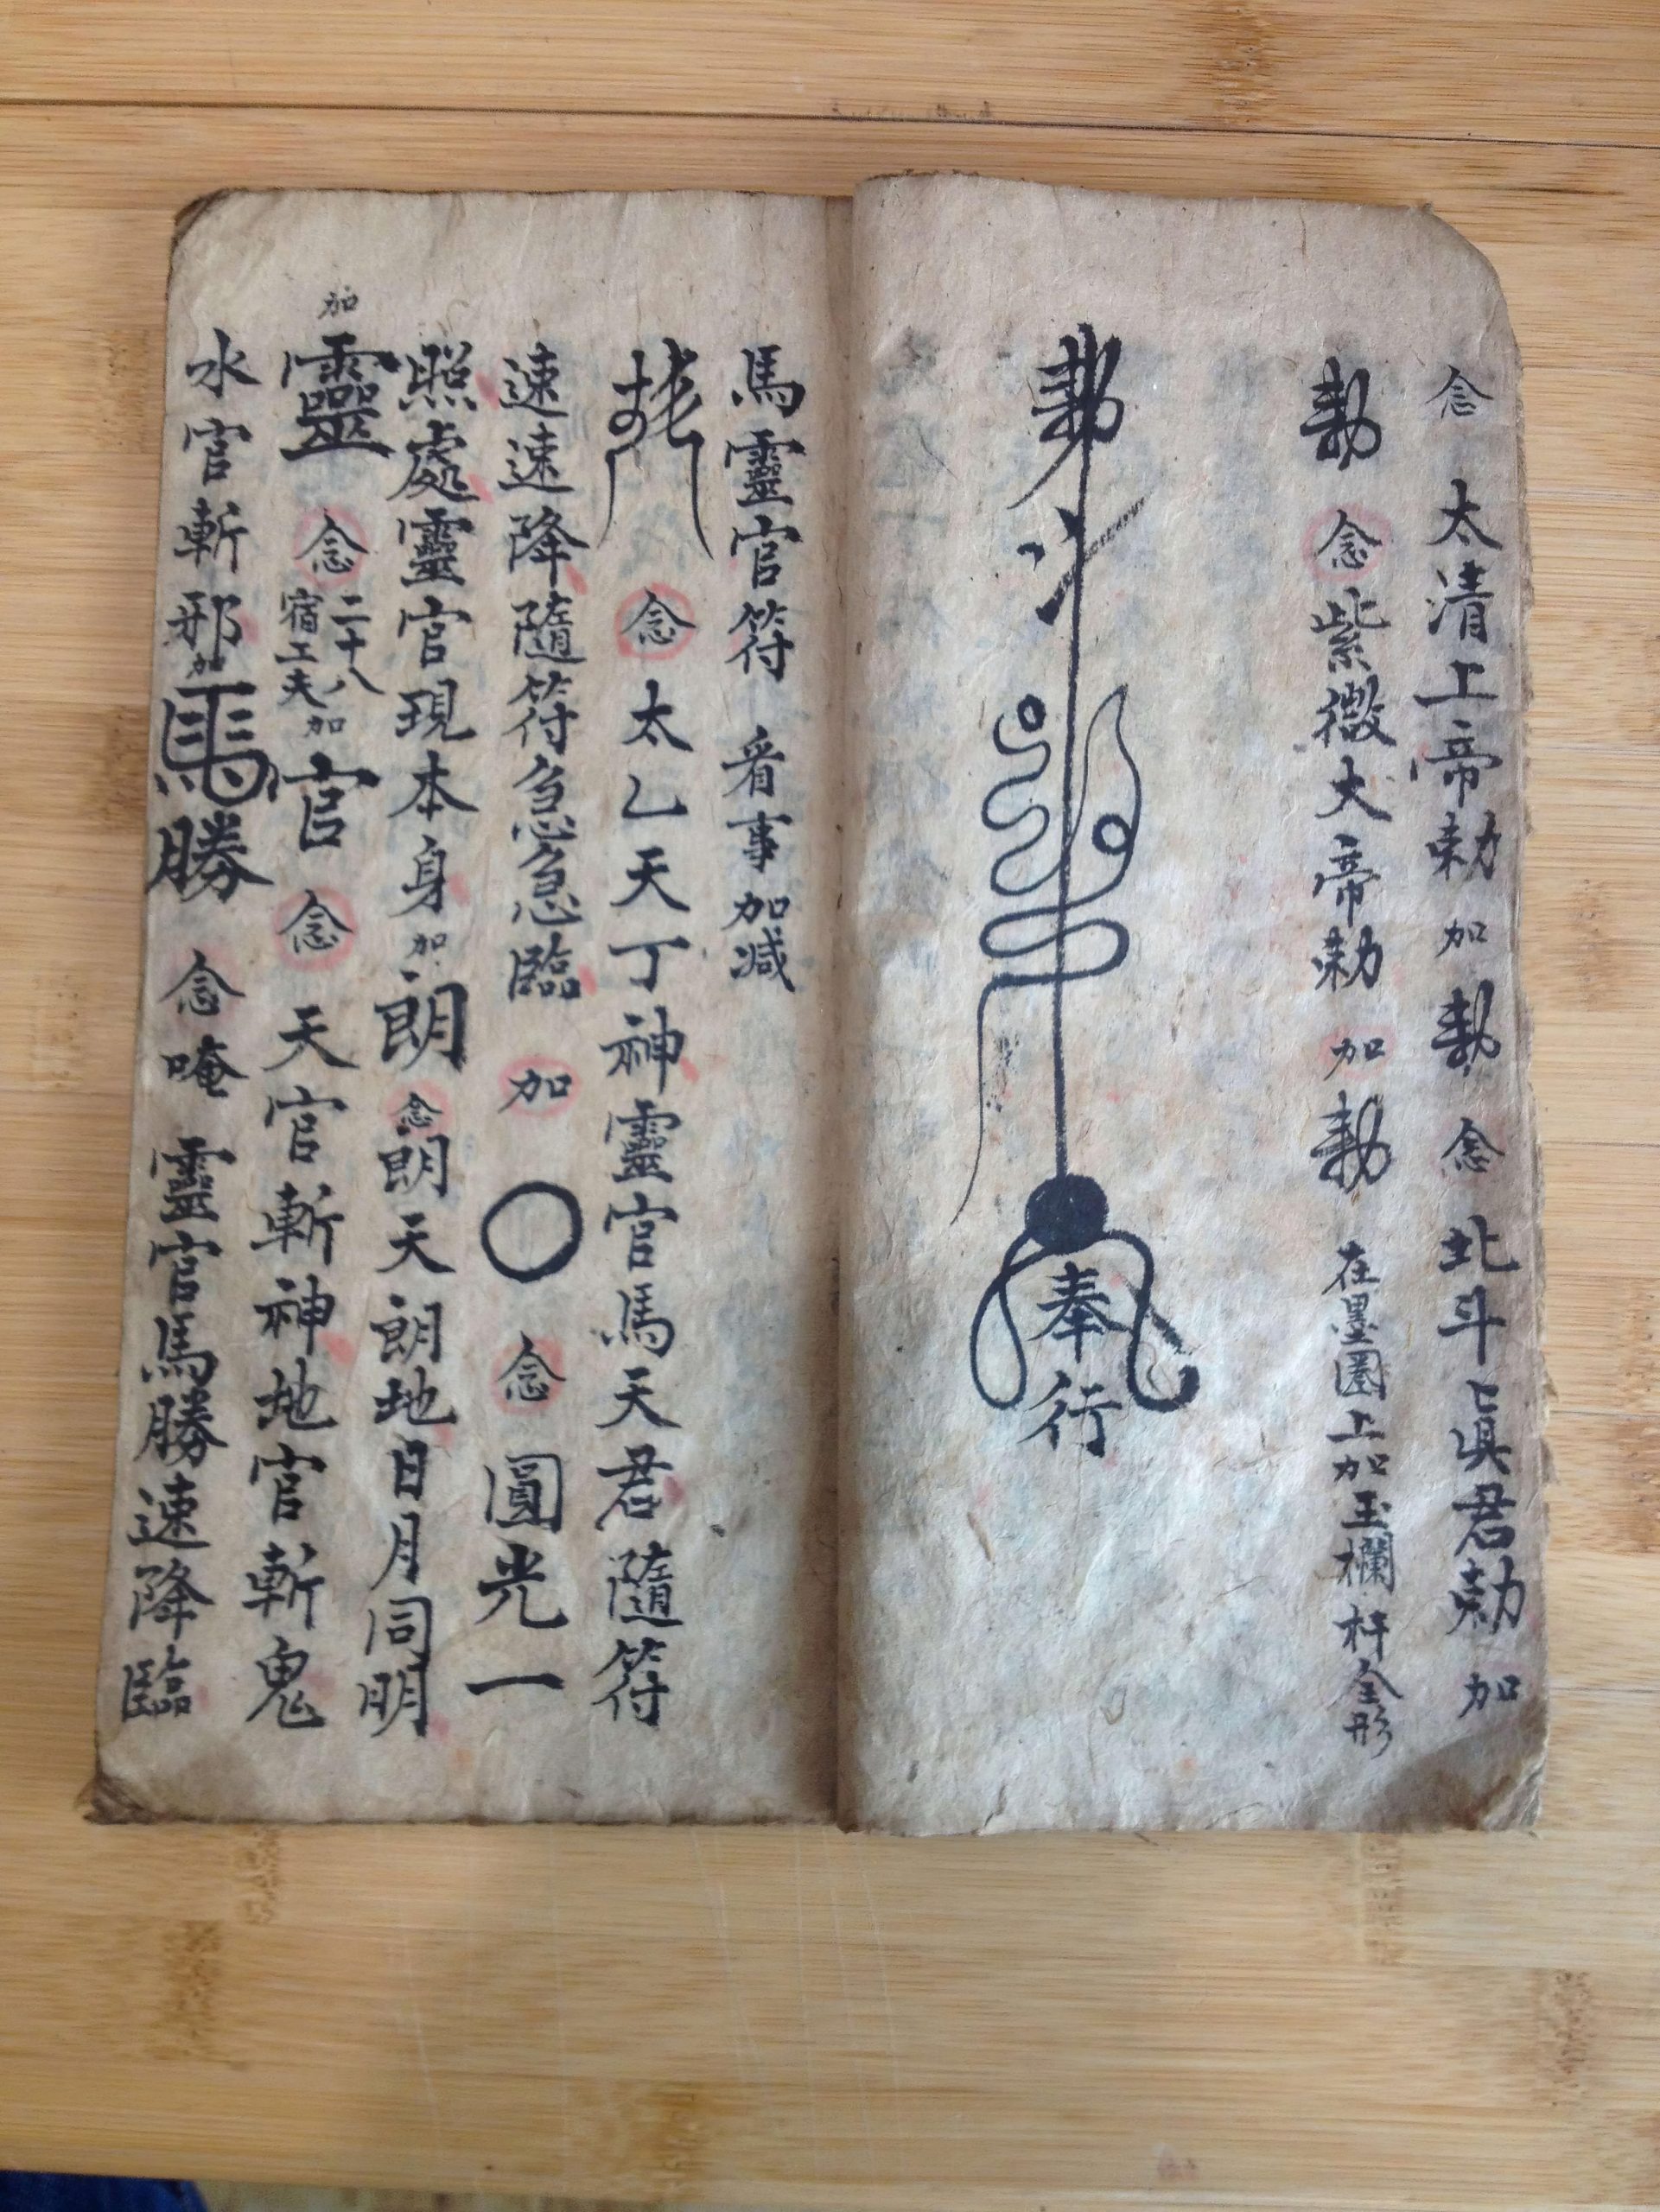 念 太清上帝勅 加 勅 念 北斗真君勅 加
勅 念 紫微大帝勅 加 勅 在墨圈上加玉欄杆全形
勅 奉行
馬靈官符 看事加減
念 太乙天丁神靈官馬天君隨符
速速降隨符急急臨 加 〇 念 圓光一
照處靈官現本身 加 朗 念 朗天朗地日月同明
加 靈 念 二十八宿工夫 加 官 念 天官斬神地官斬鬼
水官斬邪 加 馬勝 念 唵 靈官馬勝速降臨